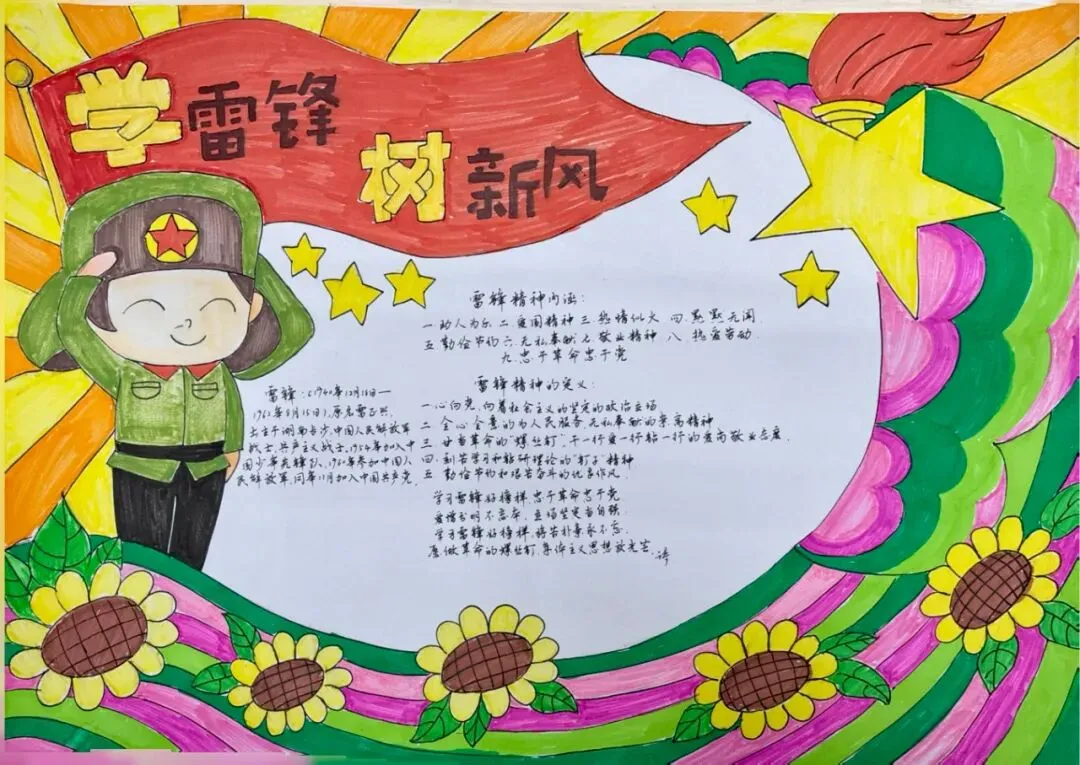 学雷锋
树新风
雷锋精神内涵：
一助人为乐 二 爱国精神 三 热情似火 四 默默无闻
五 勤俭节约 六 无私奉献 七 敬业精神 八 热爱劳动
九 忠于革命忠于党
雷锋：(1940年12月18日—
1962年8月15日)，原名雷正兴，
出生于湖南长沙，中国人民解放军
战士，共产主义战士，1954年加入中
国少年先锋队，1960年参加中国人
民解放军，同年11月加入中国共产党。
雷锋精神的定义：
一 心向党，向着社会主义的坚定的政治立场
二 全心全意的为人民服务，无私奉献的崇高精神
三 甘当革命的"螺丝钉"，干一行爱一行钻一行的爱岗敬业态度。
四 刻苦学习和钻研理论的"钉子"精神
五 勤俭节约和艰苦奋斗的优良作风
学习雷锋好榜样，忠于革命忠于党
爱憎分明不忘本，立场坚定当自强
学习雷锋好榜样，艰苦朴素永不忘
愿做革命的螺丝钉，集体主义思想放光芒。